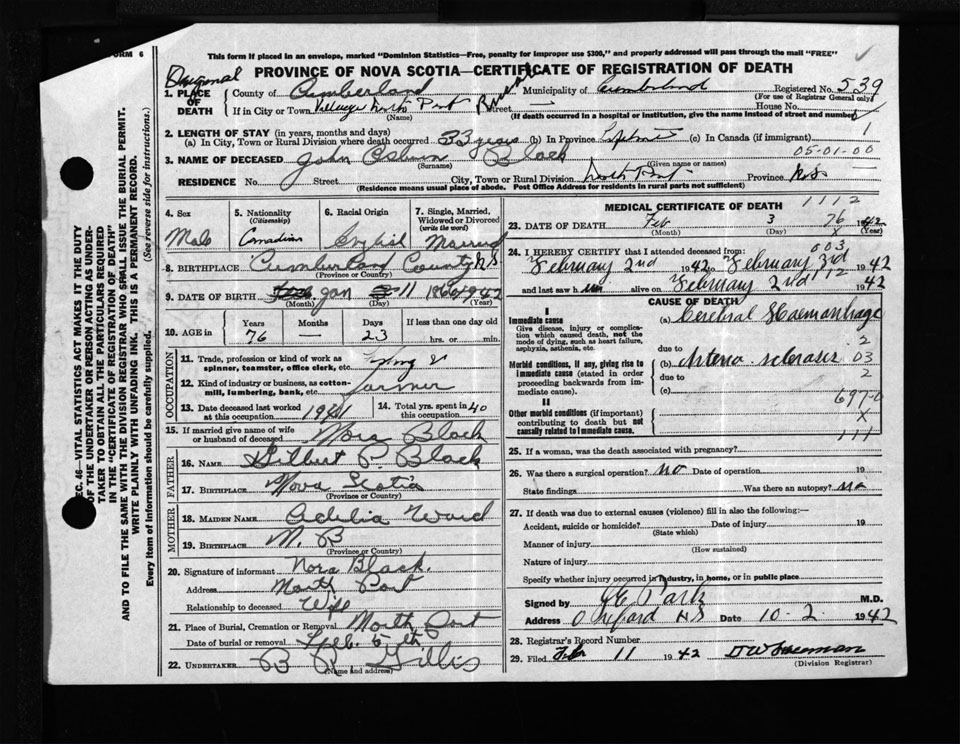 FORM 6
This form if placed in an envelope, marked "Dominion Statistics—Free, penalty for improper use $300," and properly addressed will pass through the mail "FREE"
Original
PROVINCE OF NOVA SCOTIA—CERTIFICATE OF REGISTRATION OF DEATH
1. PLACE OF DEATH
County of Cumberland Municipality of Cumberland Registered No. 539
(For use of Registrar General only)
If in City or Town Village North Port Street House No.
(Name) (If death occurred in a hospital or institution, give the name instead of street and number)
2. LENGTH OF STAY (in years, months and days)
(a) In City, Town or Rural Division where death occurred 33 years (b) In Province (c) In Canada (if immigrant) 1
05-01-00
3. NAME OF DECEASED John Black
(Surname) (Given name or names)
RESIDENCE No. Street City, Town or Rural Division North Port Province N.S.
(Residence means usual place of abode. Post Office Address for residents in rural parts not sufficient)
4. Sex Male
5. Nationality (Citizenship) Canadian
6. Racial Origin English
7. Single, Married, Widowed or Divorced (write the word) Married
8. BIRTHPLACE Cumberland County N.S.
(Province or Country)
9. DATE OF BIRTH Jan 11
(Month) (Day) (Year)
10. AGE in Years 76 Months — Days 23 If less than one day old hrs. or min.
OCCUPATION
11. Trade, profession or kind of work as spinner, teamster, office clerk, etc.
12. Kind of industry or business, as cotton-mill, lumbering, bank, etc. Farmer
13. Date deceased last worked at this occupation 1941
14. Total yrs. spent in this occupation 40
15. If married give name of wife or husband of deceased Nora Black
FATHER
16. NAME Gilbert P. Black
17. BIRTHPLACE Nova Scotia
(Province or Country)
MOTHER
18. MAIDEN NAME Adelia Ward
19. BIRTHPLACE N. B
(Province or Country)
20. Signature of informant Nora Black.
Address North Port
Relationship to deceased Wife
21. Place of Burial, Cremation or Removal North Port
Date of burial or removal Feb. 5th
22. UNDERTAKER Gillis
(Name and address)
MEDICAL CERTIFICATE OF DEATH 1112
23. DATE OF DEATH Feb 3 76 1942
(Month) (Day) X (Year)
24. I HEREBY CERTIFY that I attended deceased from: 003
February 2nd 1942 to February 3rd 1942
and last saw him alive on February 2nd 1942
CAUSE OF DEATH
I
Immediate cause (a) Cerebral Haemorrhage
Give disease, injury or complication which caused death, not the mode of dying, such as heart failure, asphyxia, asthenia, etc.
due to 2
Morbid conditions, if any, giving rise to immediate cause (stated in order proceeding backwards from immediate cause).
(b) Arterio-sclerosis 03
due to 2
(c)
697-0
II
Other morbid conditions (if important) contributing to death but not causally related to Immediate cause.
X
111
25. If a woman, was the death associated with pregnancy?
26. Was there a surgical operation? no Date of operation 19
State findings Was there an autopsy? no
27. If death was due to external causes (violence) fill in also the following:—
Accident, suicide or homicide? Date of injury 19
(State which)
Manner of injury
(How sustained)
Nature of injury
Specify whether injury occurred in industry, in home, or in public place
Signed by M.D.
Address Oxford N.S Date 10-2 1942
28. Registrar's Record Number
29. Filed Feb 11 1942
(Division Registrar)
SEC. 46—VITAL STATISTICS ACT MAKES IT THE DUTY
OF THE UNDERTAKER OR PERSON ACTING AS UNDER-
TAKER TO OBTAIN ALL THE PARTICULARS REQUIRED
IN THE "CERTIFICATE OF REGISTRATION OF DEATH"
AND TO FILE THE SAME WITH THE DIVISION REGISTRAR WHO SHALL ISSUE THE BURIAL PERMIT.
WRITE PLAINLY WITH UNFADING INK. THIS IS A PERMANENT RECORD.
Every item of information should be carefully supplied. (See reverse side for instructions.)